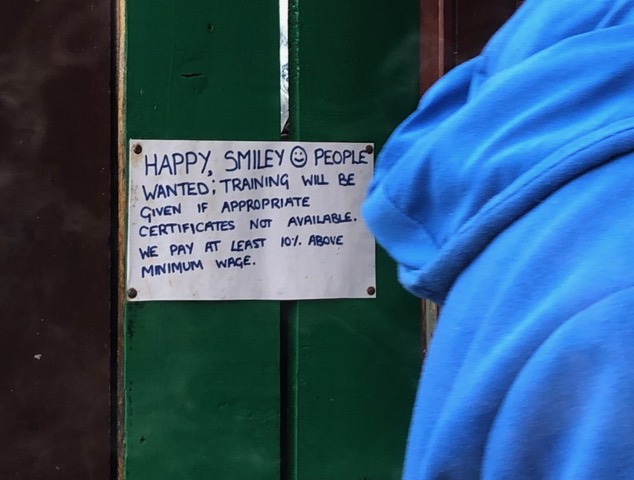 HAPPY, SMILEY ☺ PEOPLE
WANTED; TRAINING WILL BE
GIVEN IF APPROPRIATE
CERTIFICATES NOT AVAILABLE.
WE PAY AT LEAST 10% ABOVE
MINIMUM WAGE.